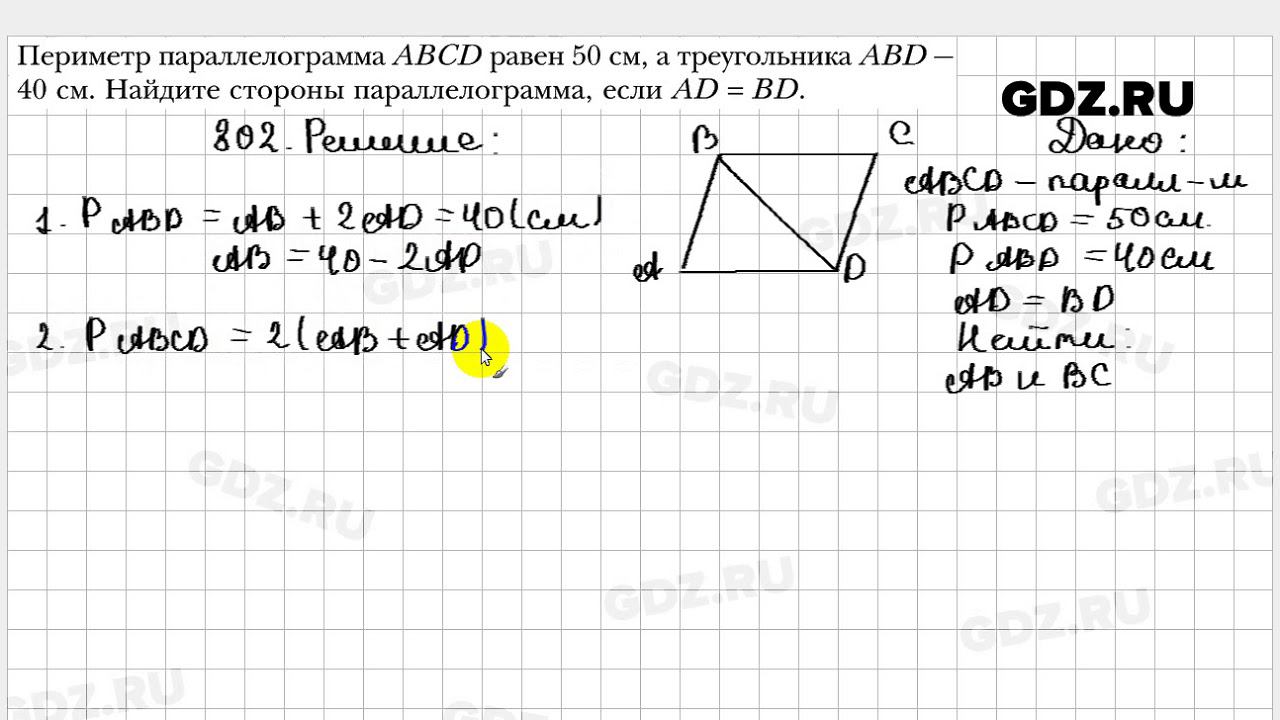 Периметр параллелограмма ABCD равен 50 см, а треугольника ABD —
40 см. Найдите стороны параллелограмма, если AD = BD.
GDZ.RU
802. Решение:
1. P ABD = AB + 2AD = 40(см)
AB = 40 - 2AD
2. P ABCD = 2(AB + AD)
B
C
A
D
Дано:
ABCD - паралл-м
P ABCD = 50см.
P ABD = 40см
AD = BD
Найти:
AB и BC
GDZ.RU
GDZ.RU
GDZ.RU
GDZ.RU
GDZ.RU
GDZ.RU
GDZ.RU
GDZ.RU
GDZ.RU
GDZ.RU
GDZ.RU